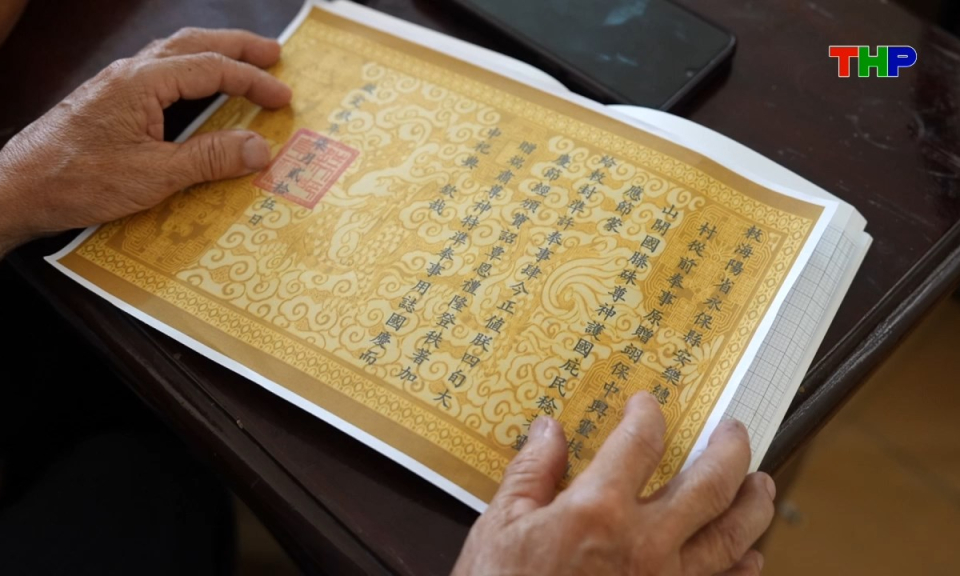 THP
敕海陽省永保縣安總
村從前奉事原贈翊保中興靈扶
山開國尊神護國庇民稔
應節蒙
給敕封準許奉事肆今正值朕四旬大
慶節經頒寶詔覃恩禮隆登秩著加
贈端肅尊神特準奉事用誌國慶而
申祀典 欽哉
年柒月貳拾伍日